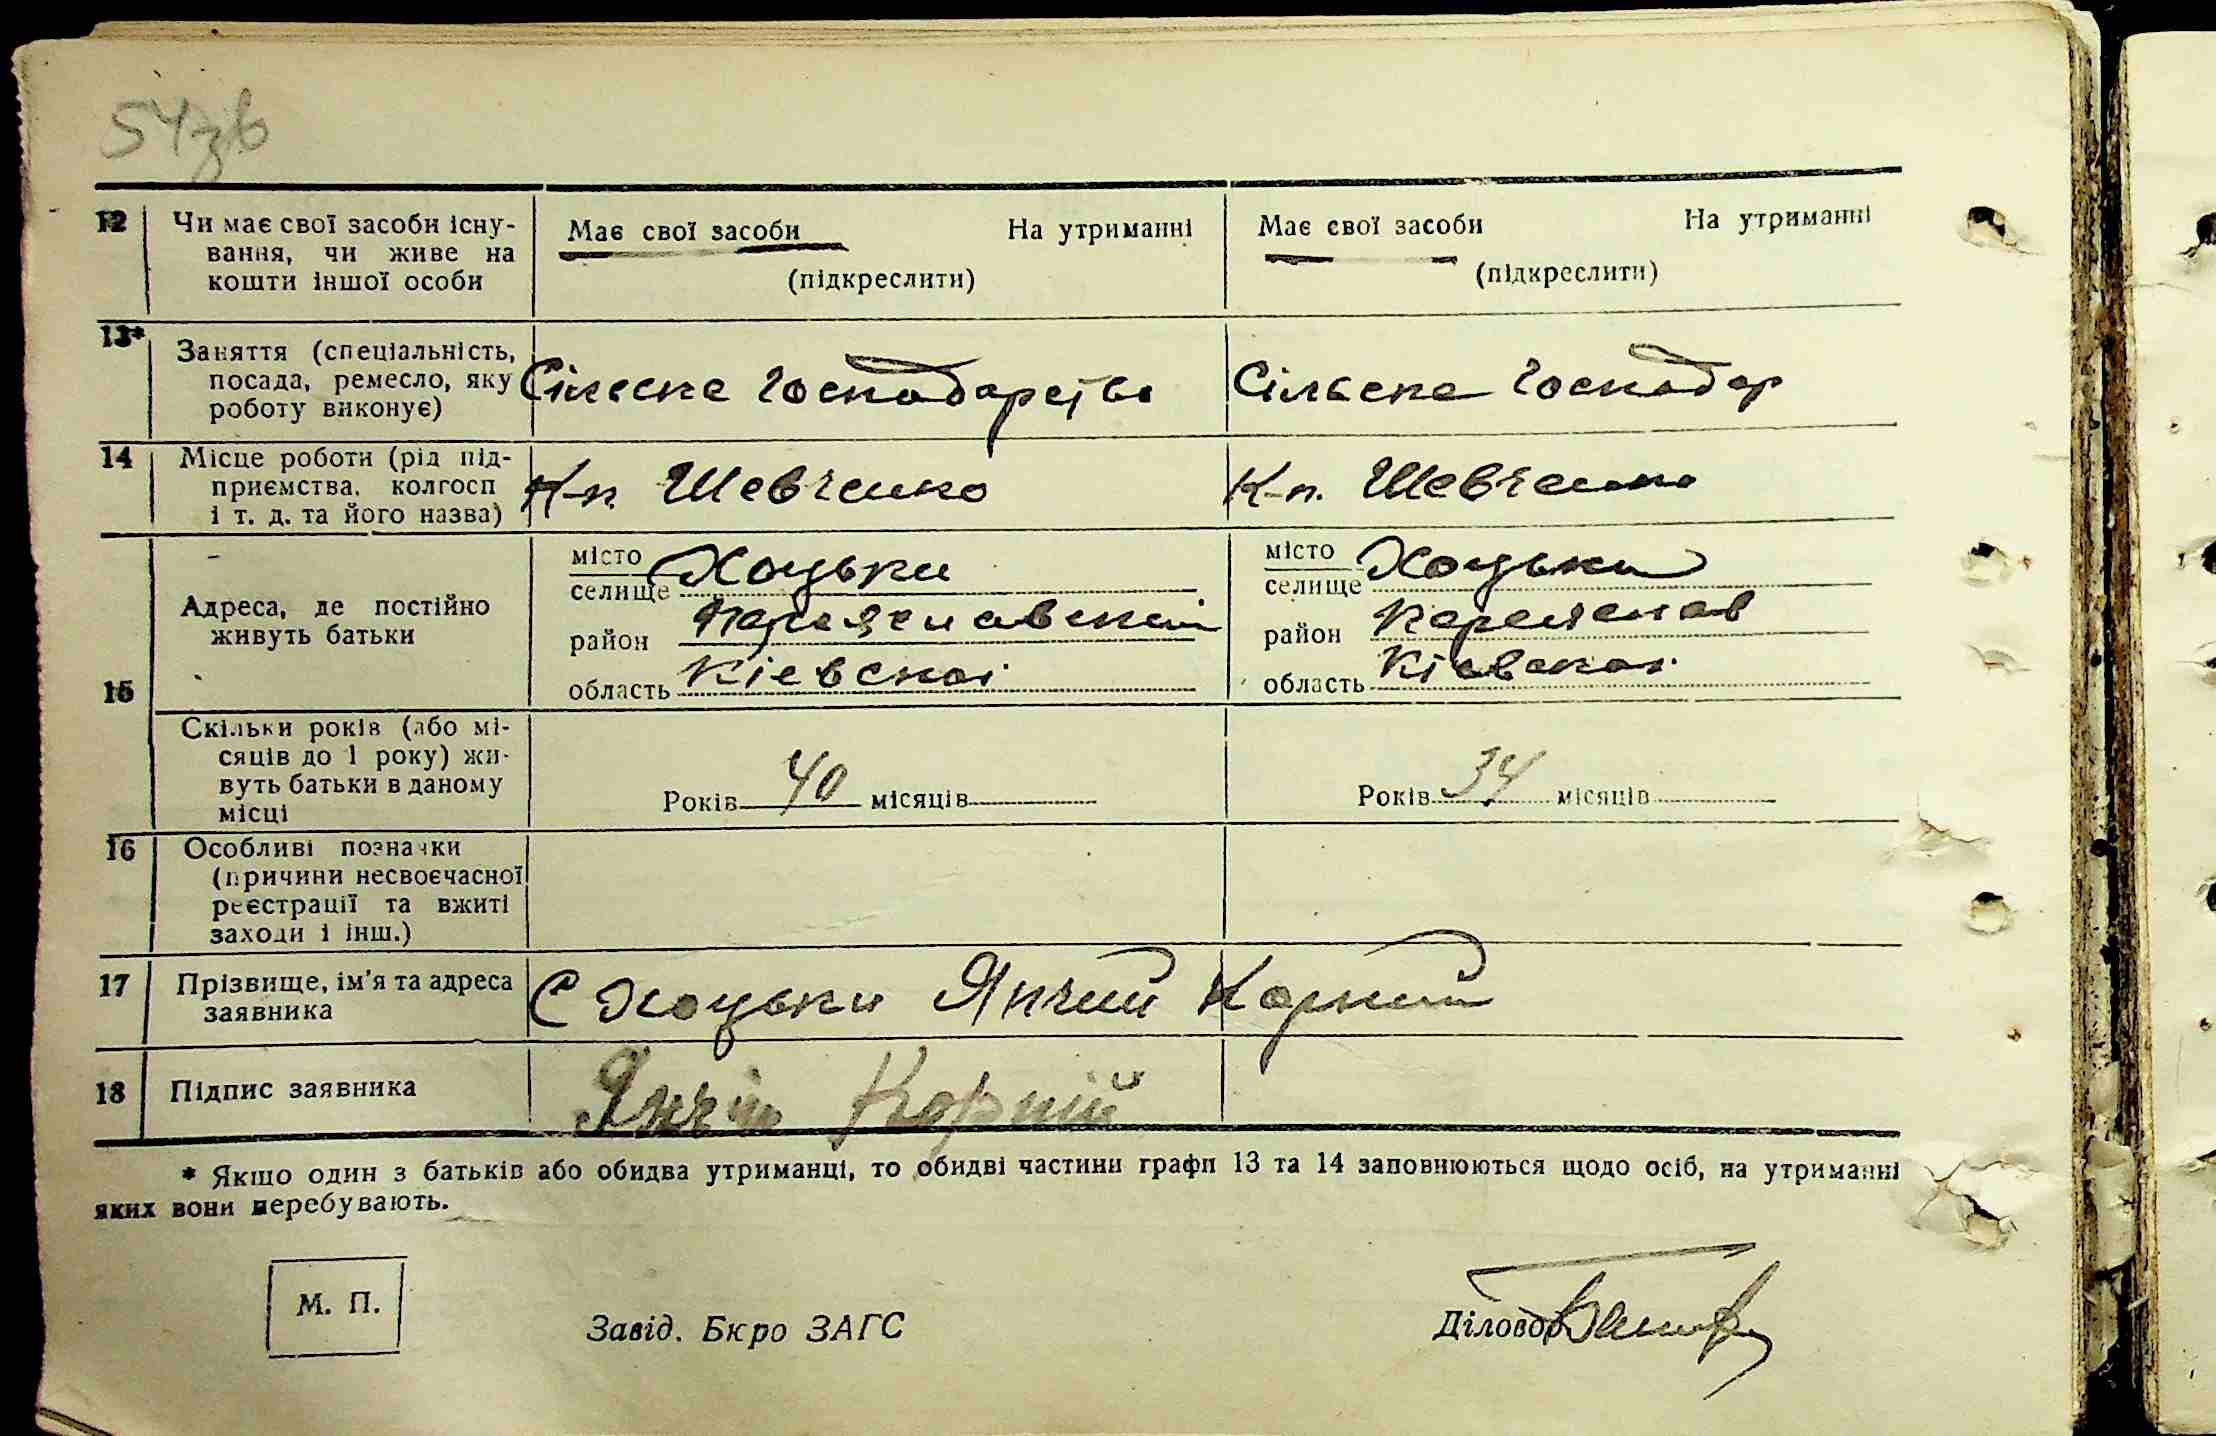 54зв
12 Чи має свої засоби існу- Має свої засоби На утриманні Має свої засоби На утриманні
вання, чи живе на
кошти іншої особи (підкреслити) (підкреслити)
13* Заняття (спеціальність,
посада, ремесло, яку Сільске господарство Сільске господар
роботу виконує)
14 Місце роботи (рід під-
приємства, колгосп К-п. Шевченко К-п. Шевченко
і т. д. та його назва)
15 Адреса, де постійно
живуть батьки
місто Хоцьки місто Хоцьки
селище селище
район Переяславский район Переяслав
область Кіевскоі область Кіевскоі
Скільки років (або мі-
сяців до 1 року) жи-
вуть батьки в даному Років 40 місяців Років 34 місяців
місці
16 Особливі позначки
(причини несвоєчасної
реєстрації та вжиті
заходи і інш.)
17 Прізвище, ім'я та адреса С Хоцьки Янчий Корний
заявника
18 Підпис заявника Янчій Корній
* Якщо один з батьків або обидва утриманці, то обидві частини графи 13 та 14 заповнюються щодо осіб, на утриманні
яких вони перебувають.
М. П.
Завід. Бюро ЗАГС Діловод